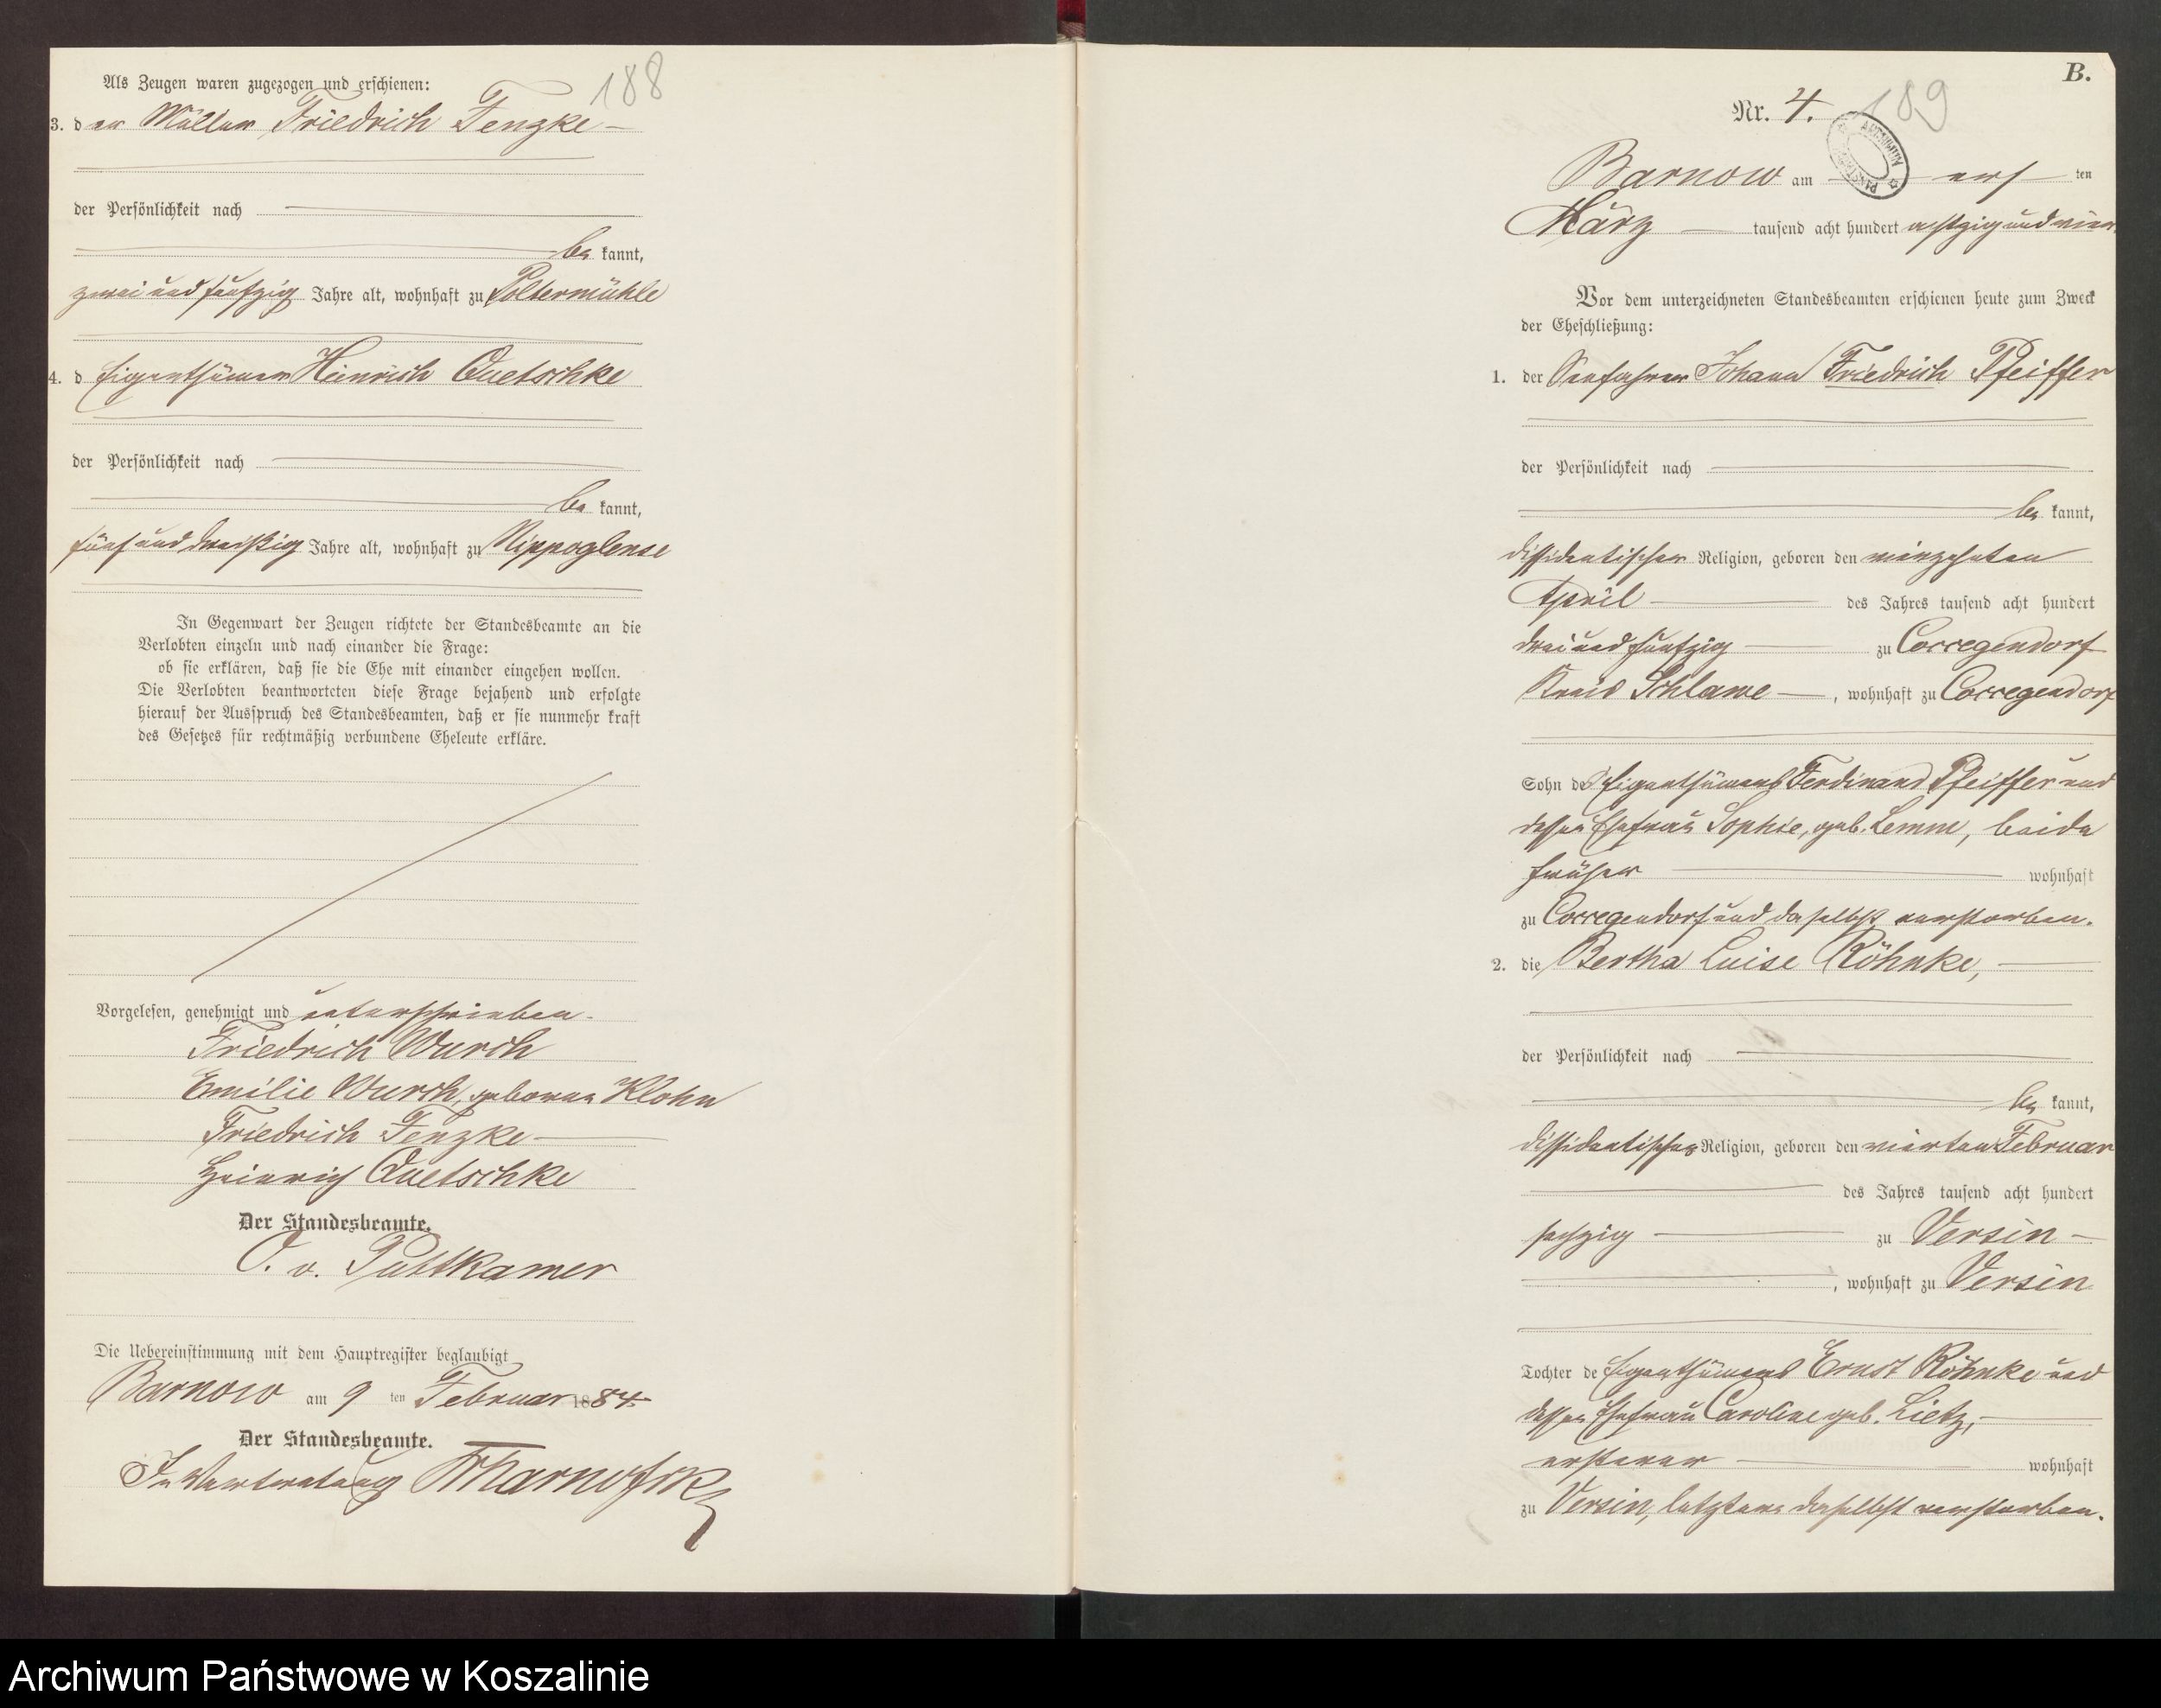 188
Als Zeugen waren zugezogen und erschienen:
3. der Müller Friedrich Tenzke
der Persönlichkeit nach
be kannt,
zwei und fünfzig Jahre alt, wohnhaft zu Poltermühle
4. d Eigenthümer Heinrich Quetschke
der Persönlichkeit nach
be kannt,
fünf und dreißig Jahre alt, wohnhaft zu Nippoglense
In Gegenwart der Zeugen richtete der Standesbeamte an die
Verlobten einzeln und nach einander die Frage:
ob sie erklären, daß sie die Ehe mit einander eingehen wollen.
Die Verlobten beantworteten diese Frage bejahend und erfolgte
hierauf der Ausspruch des Standesbeamten, daß er sie nunmehr kraft
des Gesetzes für rechtmäßig verbundene Eheleute erkläre.
Vorgelesen, genehmigt und unterschrieben.
Friedrich Wurch
Emilie Wurch, geborene Klohn
Friedrich Tenzke
Heinrich Quetschke
Der Standesbeamte.
O. v. Puttkamer
Die Uebereinstimmung mit dem Hauptregister beglaubigt
Barnow am 9 ten Februar 1884
Der Standesbeamte.
In Vertretung
B.
Nr. 4.
189
Barnow am ers ten
März tausend acht hundert achtzig und vier
Vor dem unterzeichneten Standesbeamten erschienen heute zum Zweck
der Eheschließung:
1. der Seefahrer Johann Friedrich Pfeiffer
der Persönlichkeit nach
be kannt,
dissidentischer Religion, geboren den vierzehnten
April des Jahres tausend acht hundert
drei und fünfzig zu Coccegendorf
Kreis Schlawe, wohnhaft zu Coccegendorf
Sohn des Eigenthümers Ferdinand Pfeiffer und
dessen Ehefrau Sophie, geb. Lemm, beide
früher wohnhaft
zu Coccegendorf und daselbst verstorben.
2. die Bertha Luise Röhnke,
der Persönlichkeit nach
be kannt,
dissidentischer Religion, geboren den vierten Februar
des Jahres tausend acht hundert
sechzig zu Versin
, wohnhaft zu Versin
Tochter des Eigenthümers Ernst Röhnke und
dessen Ehefrau Caroline geb. Lietz,
ersterer wohnhaft
zu Versin, letztere daselbst verstorben.
Archiwum Państwowe w Koszalinie